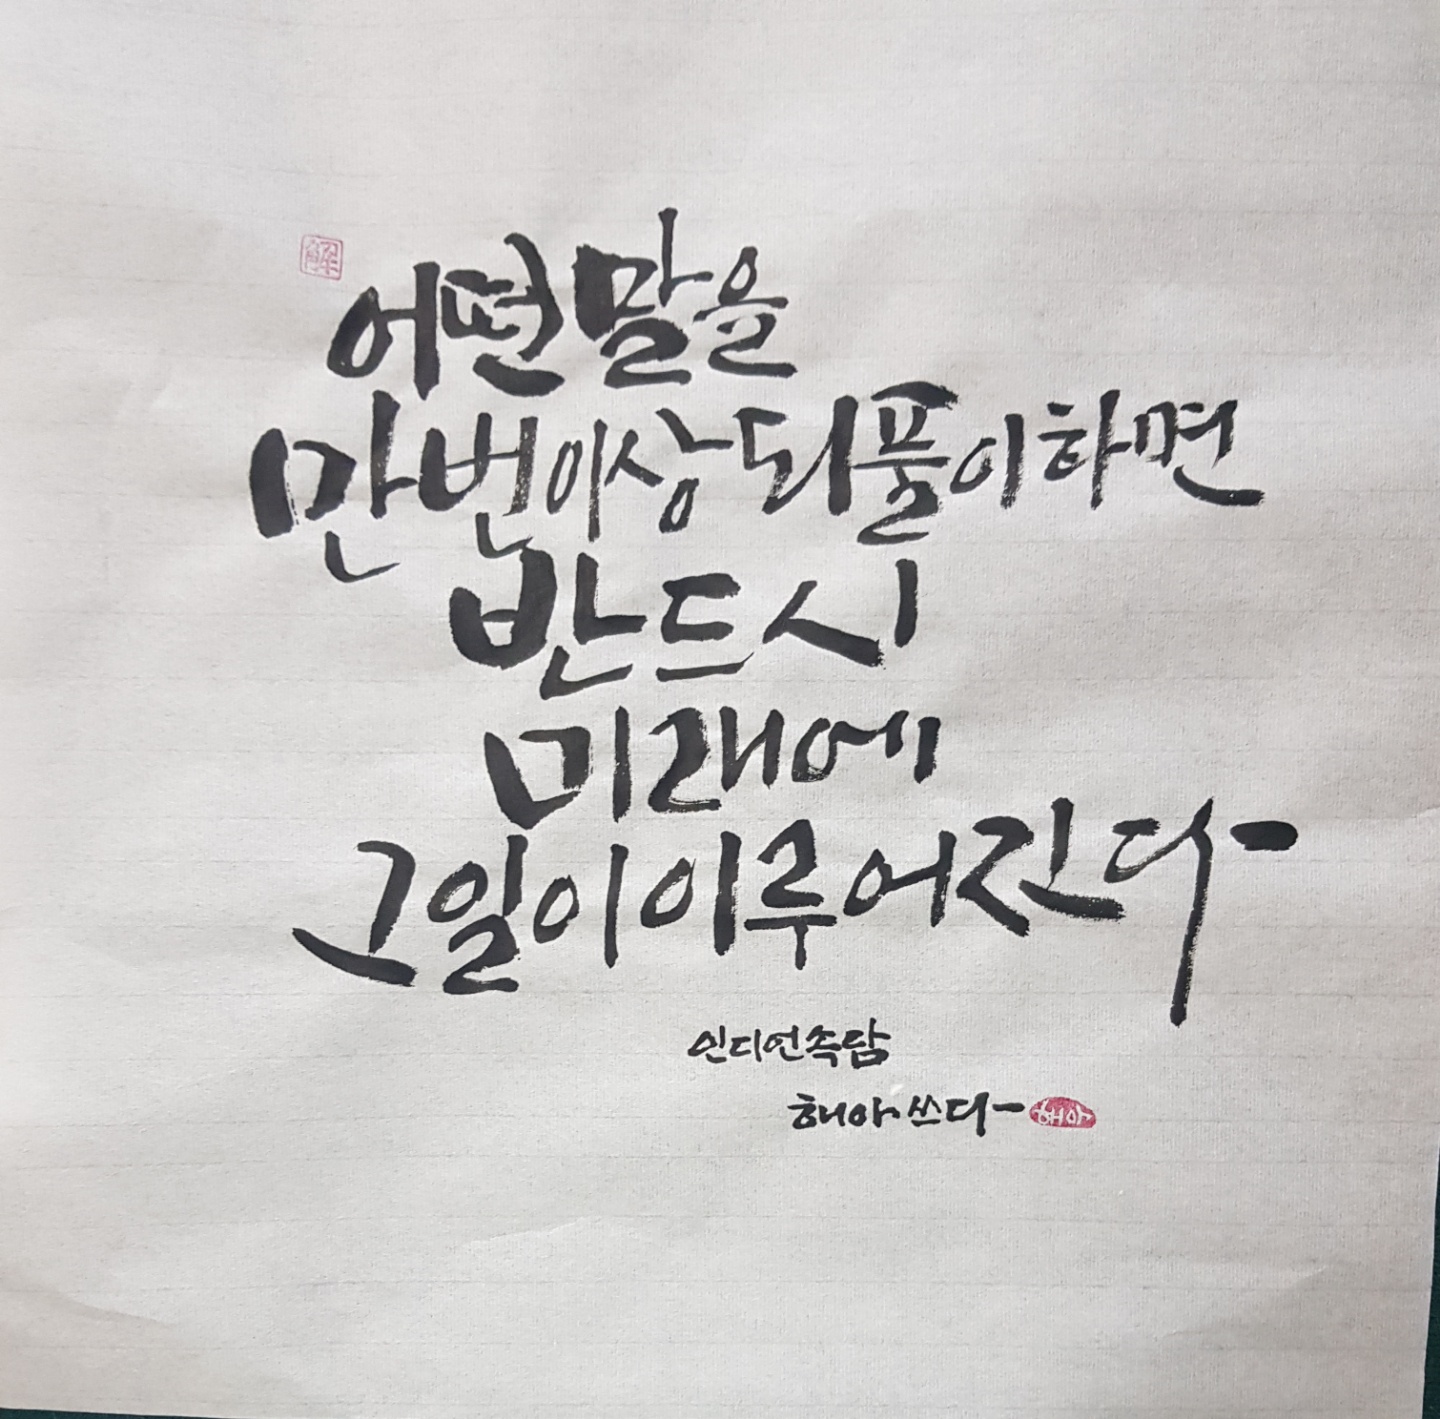 어떤 말을
만번이상 되풀이하면
반드시
미래에
그일이 이루어진다
인디언속담
해아 쓰다
해아